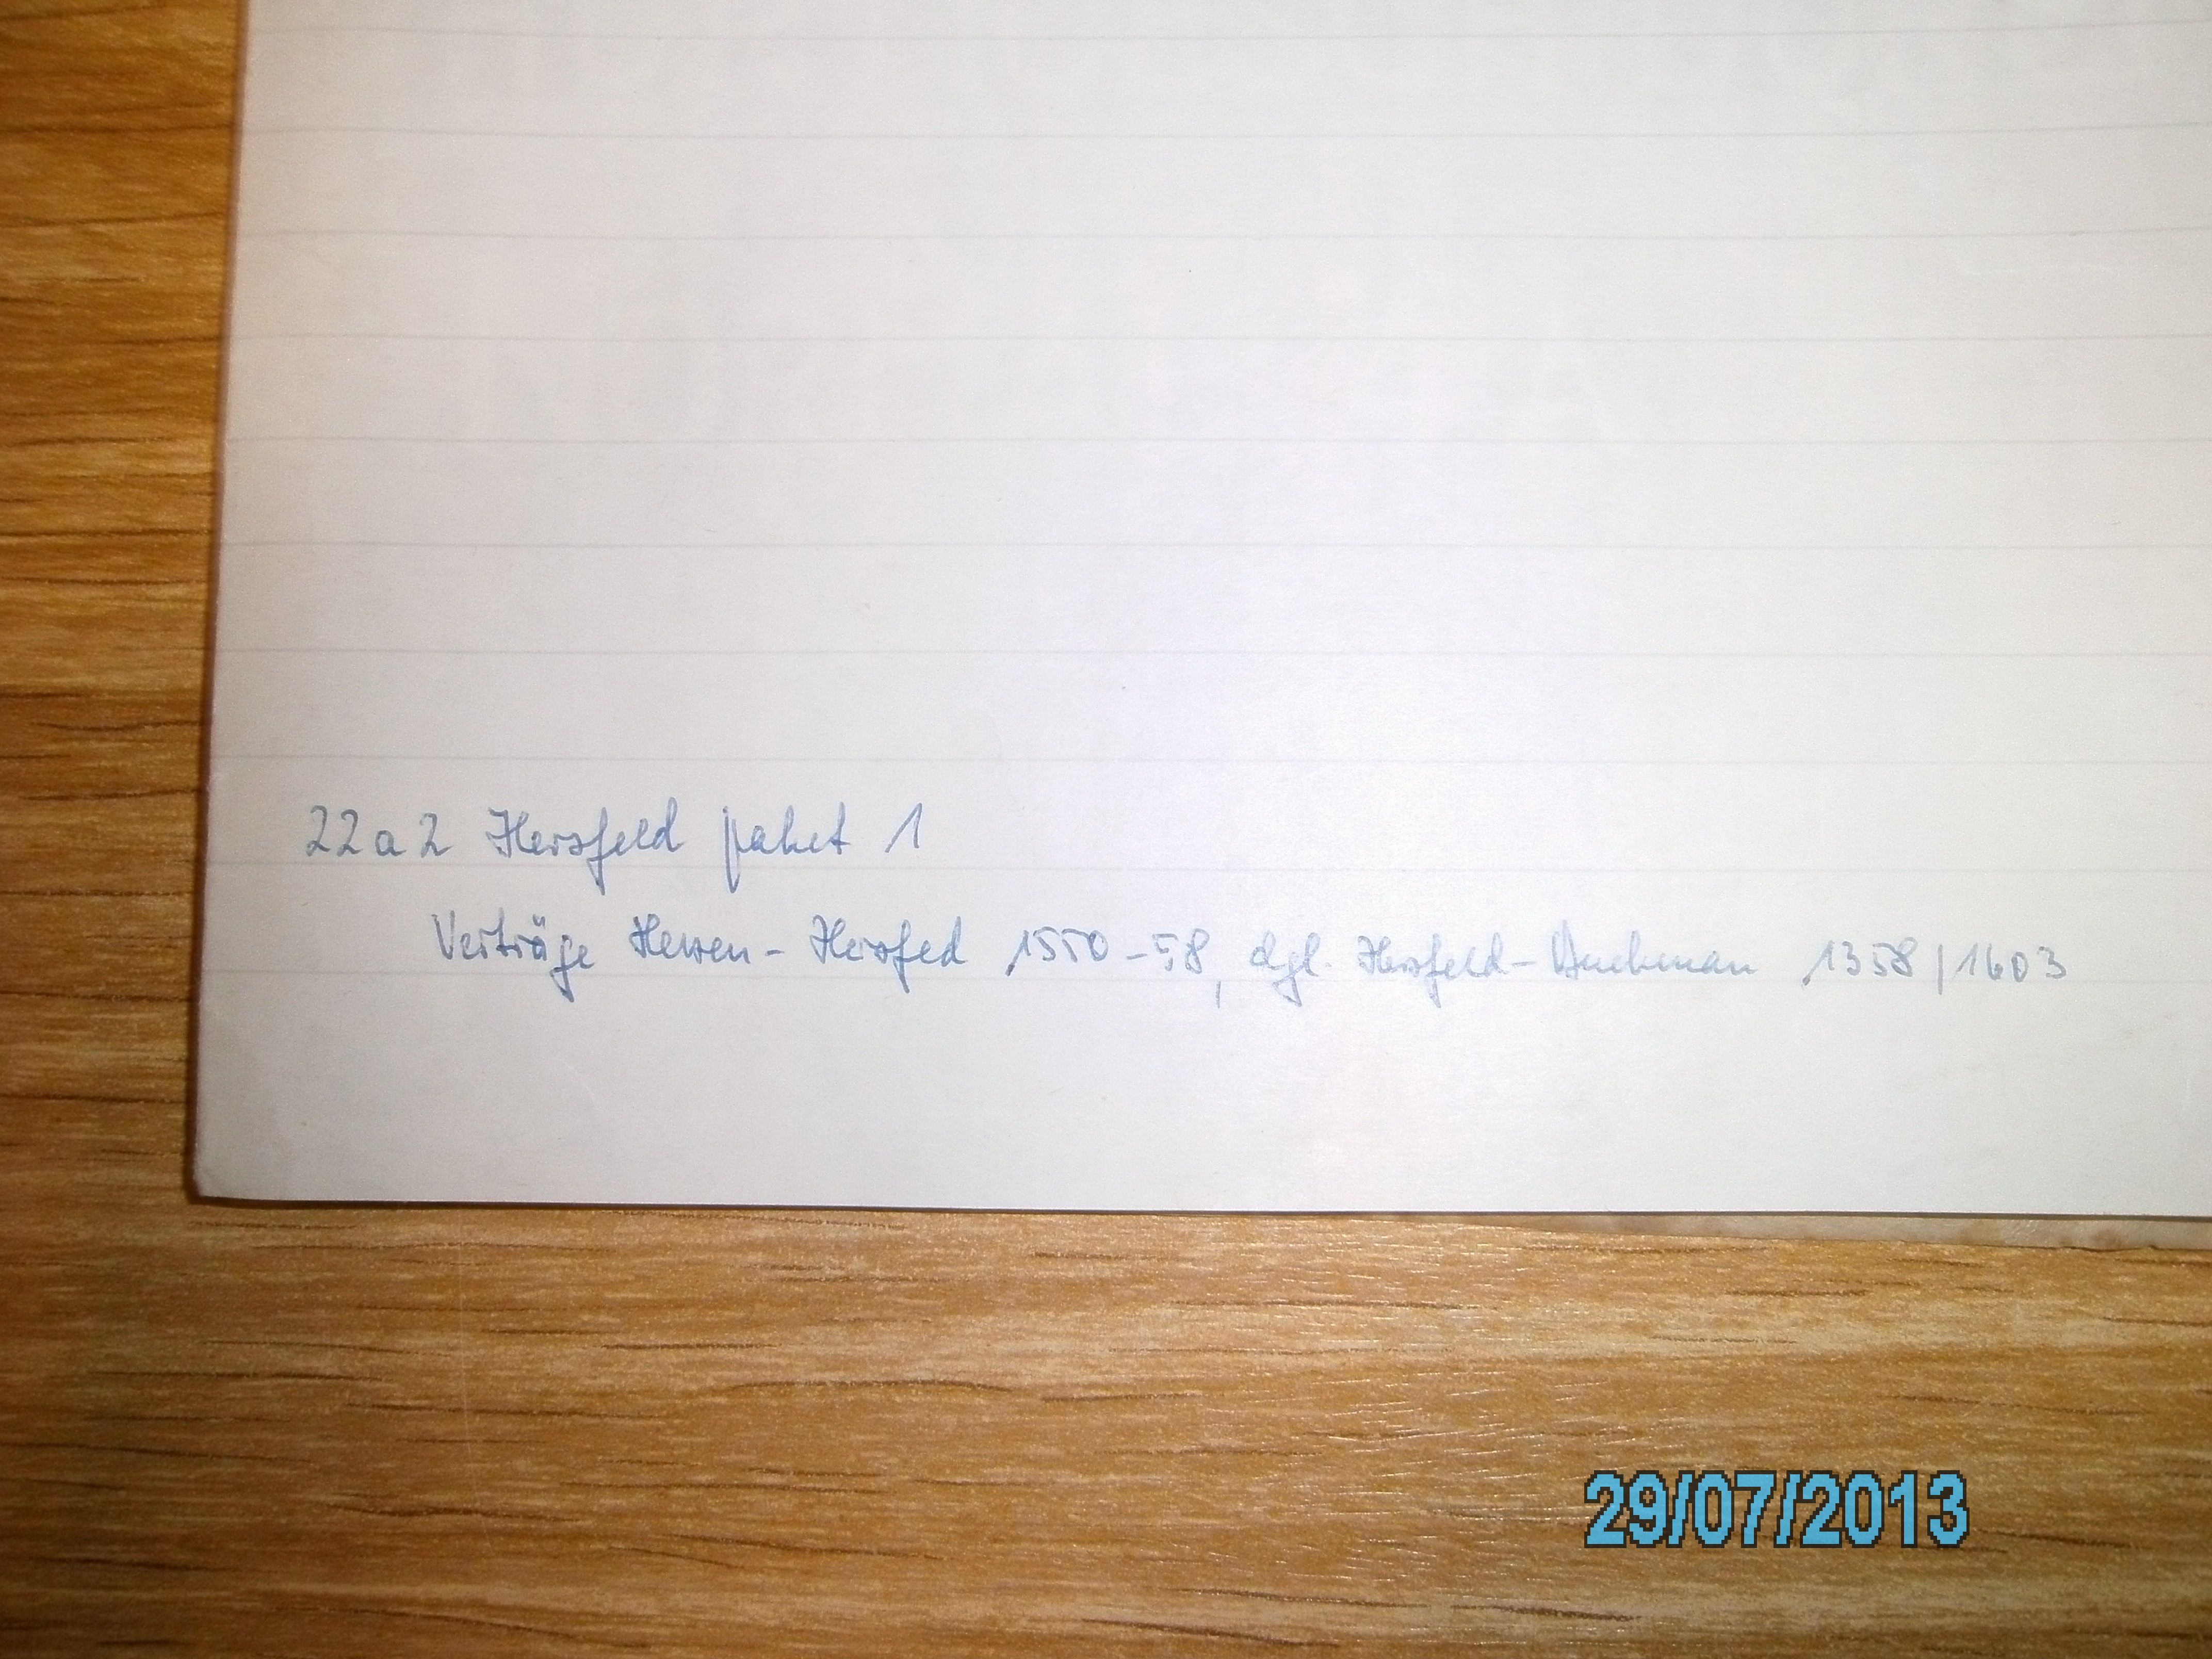 22a2 Hersfeld paket 1
Verträge Hessen - Hersfed 1550-58, dgl. Hersfeld- 1358/1603
29/07/2013